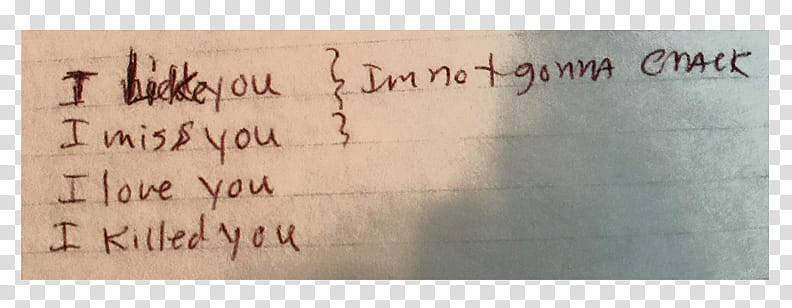 I like you } I'm not gonna crack
I miss you }
I love you
I killed you